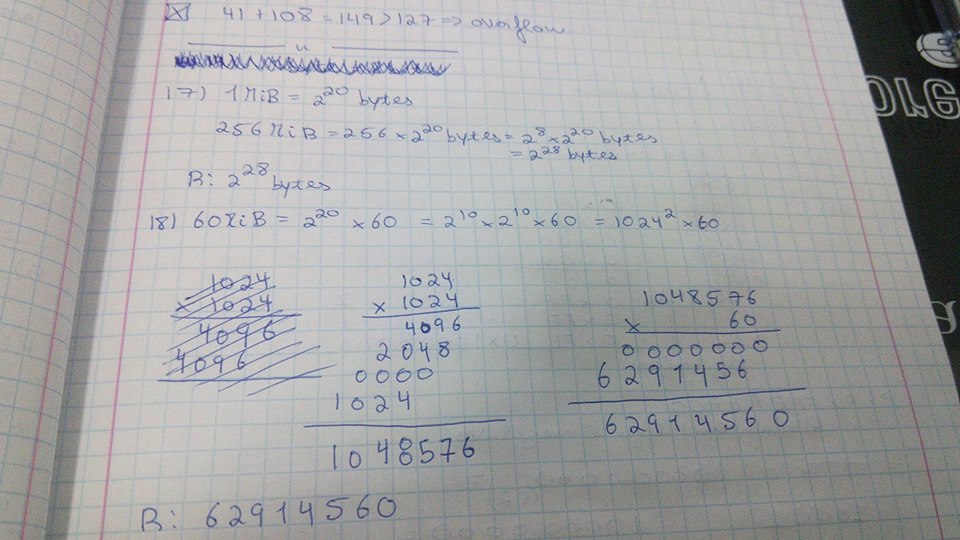 ☒ 41 + 108 = 149 > 127 => overflow
17) 1 MiB = 2^20 bytes
256 MiB = 256 × 2^20 bytes = 2^8 × 2^20 bytes
= 2^28 bytes
R: 2^28 bytes
18) 60 MiB = 2^20 × 60 = 2^10 × 2^10 × 60 = 1024^2 × 60
1024
× 1024
4096
4096
1024
× 1024
4096
2048
0000
1024
1048576
1048576
× 60
0000000
6291456
62914560
R: 62914560